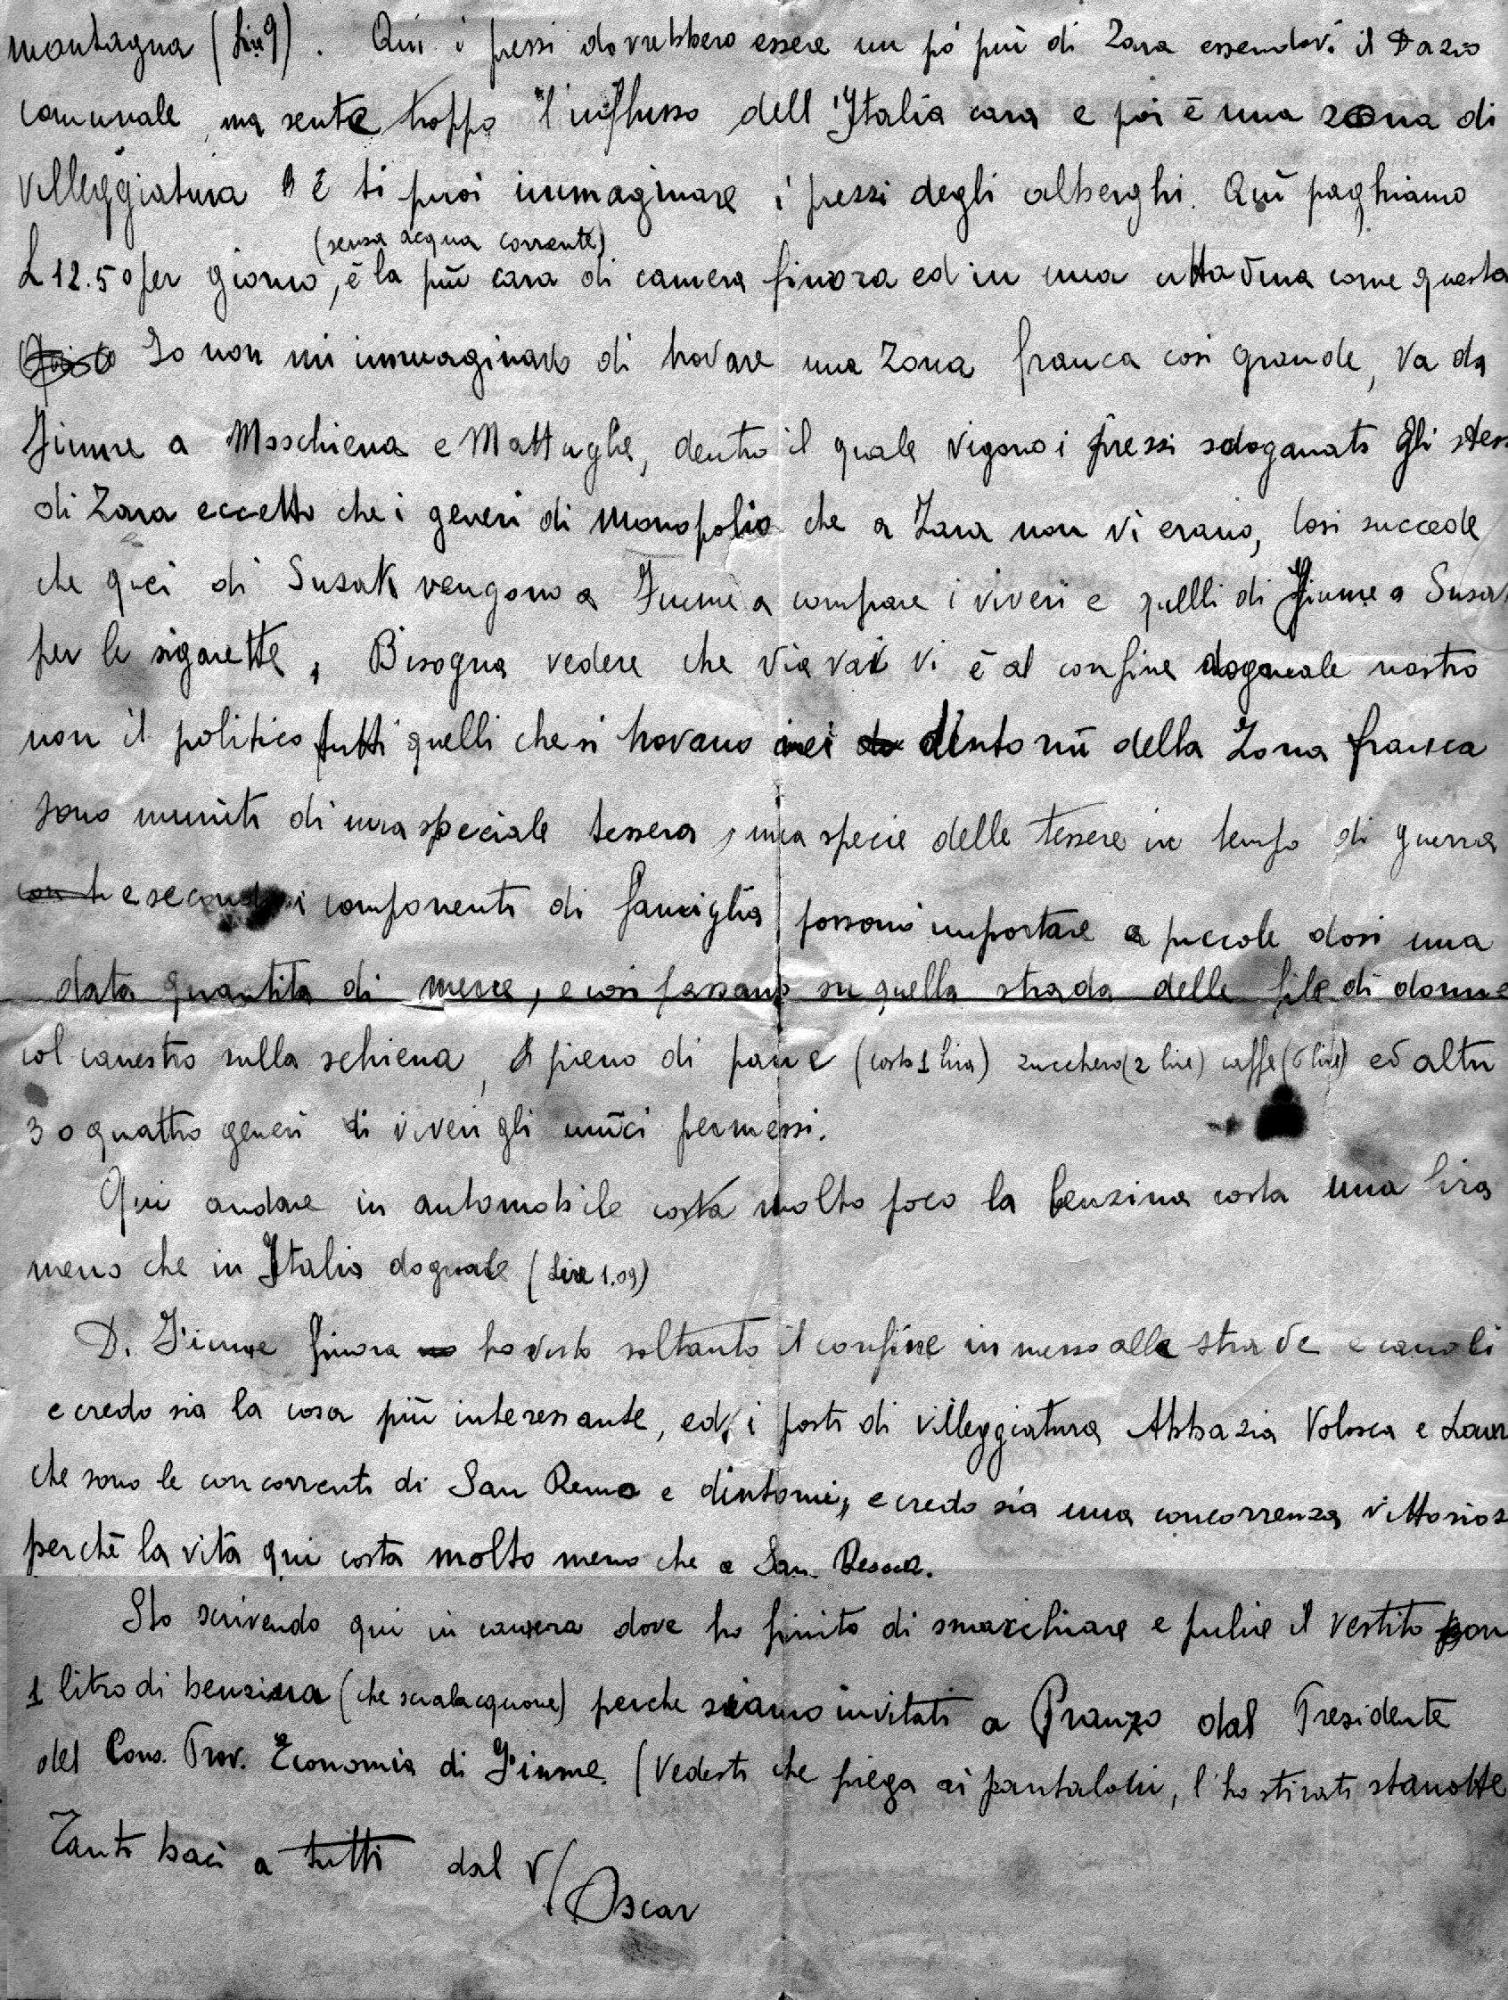 montagna (Lire 9). Qui i pressi dovrebbero essere un pó piú di Zara essendovi il Dazio
comunale, ma sente troppo l'influsso dell'Italia cara e poi é una zona di
villeggiatura E ti puoi immaginare i prezzi degli alberghi. Qui paghiamo
(senza acqua corrente)
L 12.50 per giorno, é la piú cara di camera finora ed in una cittadina come questa
Io non mi immaginavo di trovare una Zona franca cosi grande, va da
Fiume a Moschiena e Mattuglie, dentro il quale vigono i prezzi sdoganati gli stess
di Zara eccetto che i generi di monopolio che a Zara non vi erano, Cosi succede
che quei di Susak vengono a Fiume a comprare i viveri e quelli di Fiume a Susak
per le sigarette, Bisogna vedere che via vai vi é al confine doganale nostro
non il politico tutti quelli che si trovano nei dintorni della Zona franca
sono muniti di una speciale tessera, una specie delle tessere in tempo di guerra
e secondo i componenti di famiglia possono importare a piccole dosi una
data quantita di merce, e cosi passano su quella strada delle file di donne
col canestro sulla schiena, pieno di pane (costa 1 lira) zucchero (2 lire) caffe (6 lire) ed altri
3 o quattro generi di viveri gli unici permessi.
Qui andare in automobile costa molto poco la benzina costa una lira
meno che in Italia doganale (Lire 1.09)
D. Fiume finora ho visto soltanto il confine in mezzo alle strade e canali
e credo sia la cosa piú interessante, ed i posti di villeggiatura Abbazia Volosca e Laur
che sono le concorrenti di San Remo e dintorni, e credo sia una concorrenza vittorios
perché la vita qui costa molto meno che a San Remo.
Sto scrivendo qui in camera dove ho finito di smacchiare e pulire il vestito con
1 litro di benzina (che scialacquone) perche siamo invitati a Pranzo dal Presidente
del Cons. Prov. Economia di Fiume. (Vedesti che piega ai pantaloni, l'ho stirati stanotte
Tanti baci a tutti dal V/
Oscar